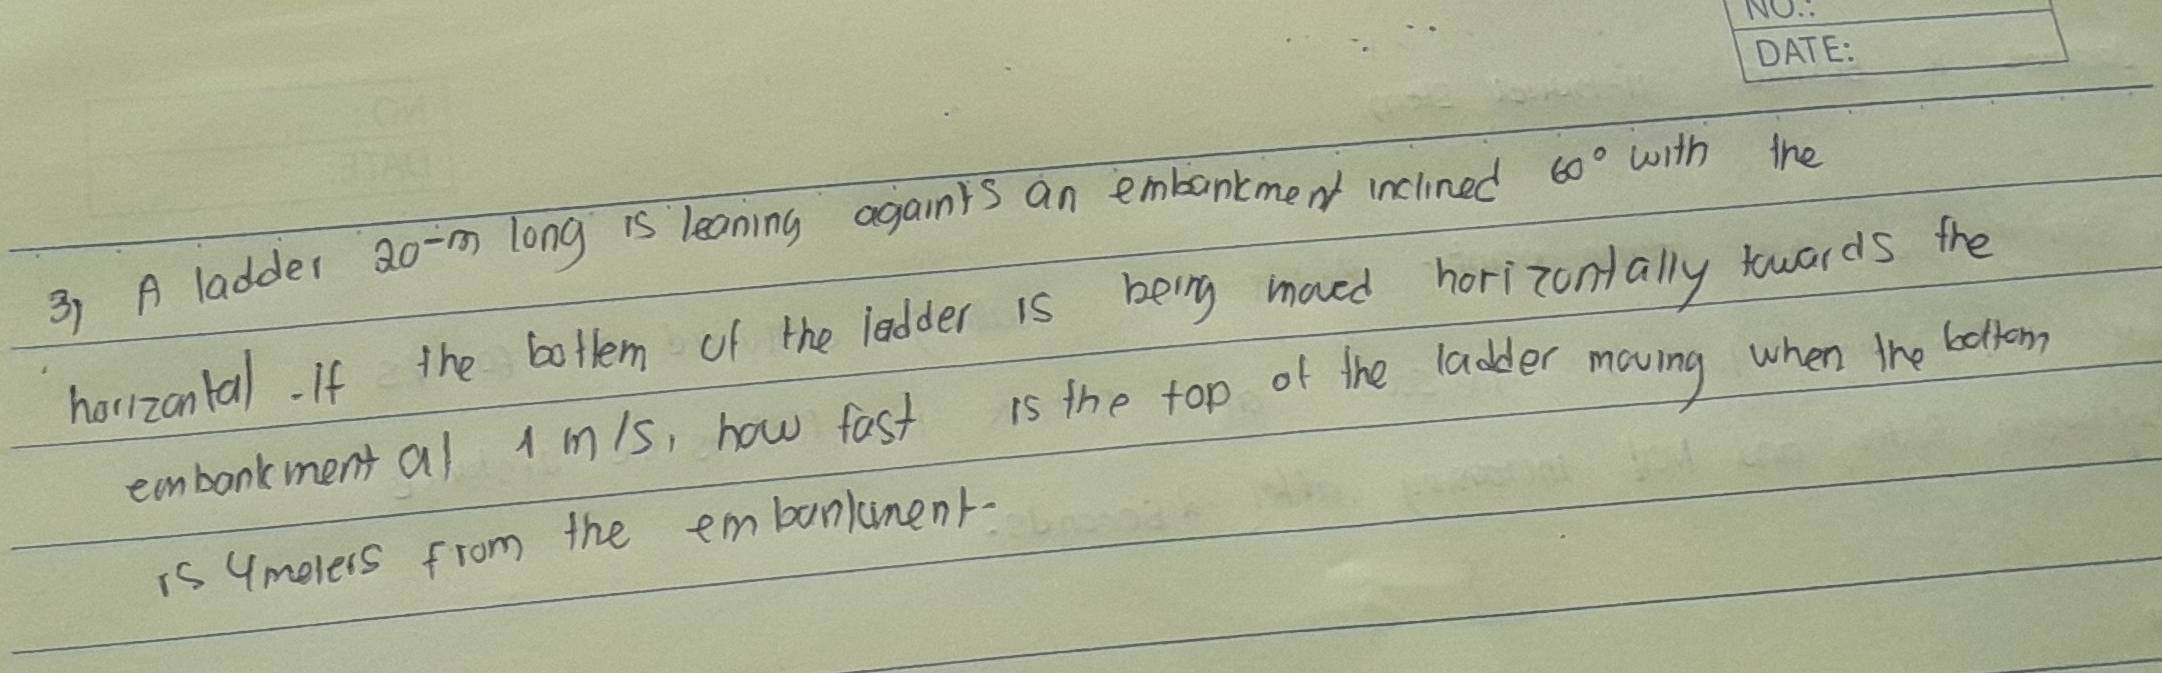 NO.:
DATE:
3) A ladder 20-m long is leaning againts an embankment inclined 60° with the
horizontal. If the bottem of the ladder is being moved horizontally towards the
embankment at 1 m/s, how fast is the top of the ladder moving when the bottom
is 4 meters from the embankment.